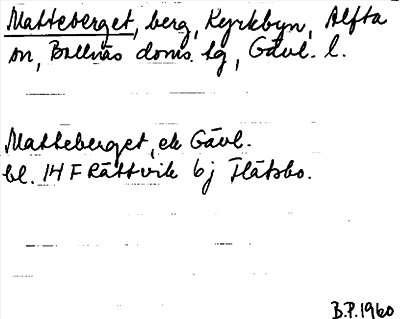 Matteberget, berg, Kyrkbyn, Alfta
sn, Bollnäs doms. tg, Gävl. l.
Matteberget, ek Gävl.
bl. 14 F Rättvik 6j Flätsbo.
B.P. 1960